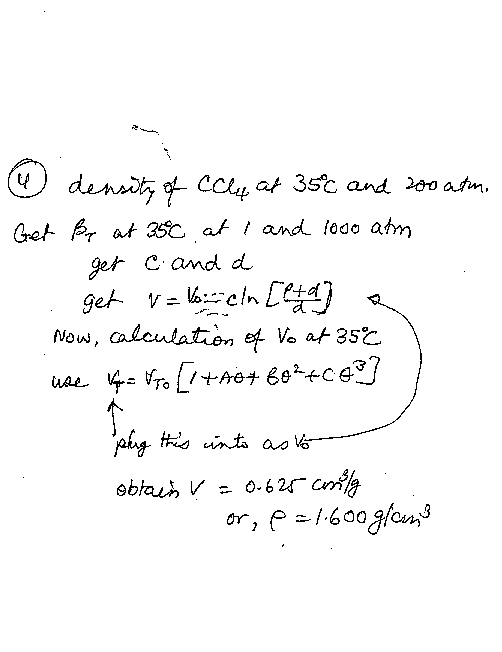 ④ density of CCl4 at 35°C and 200 atm.
Get βT at 35°C at 1 and 1000 atm
get c and d
get V = V0 - c ln [P+d/d]
Now, calculation of V0 at 35°C
use VT = VT0 [1+Aθ+Bθ²+Cθ³]
plug this into as V0
obtain V = 0.625 cm³/g
or, ρ = 1.600 g/cm³